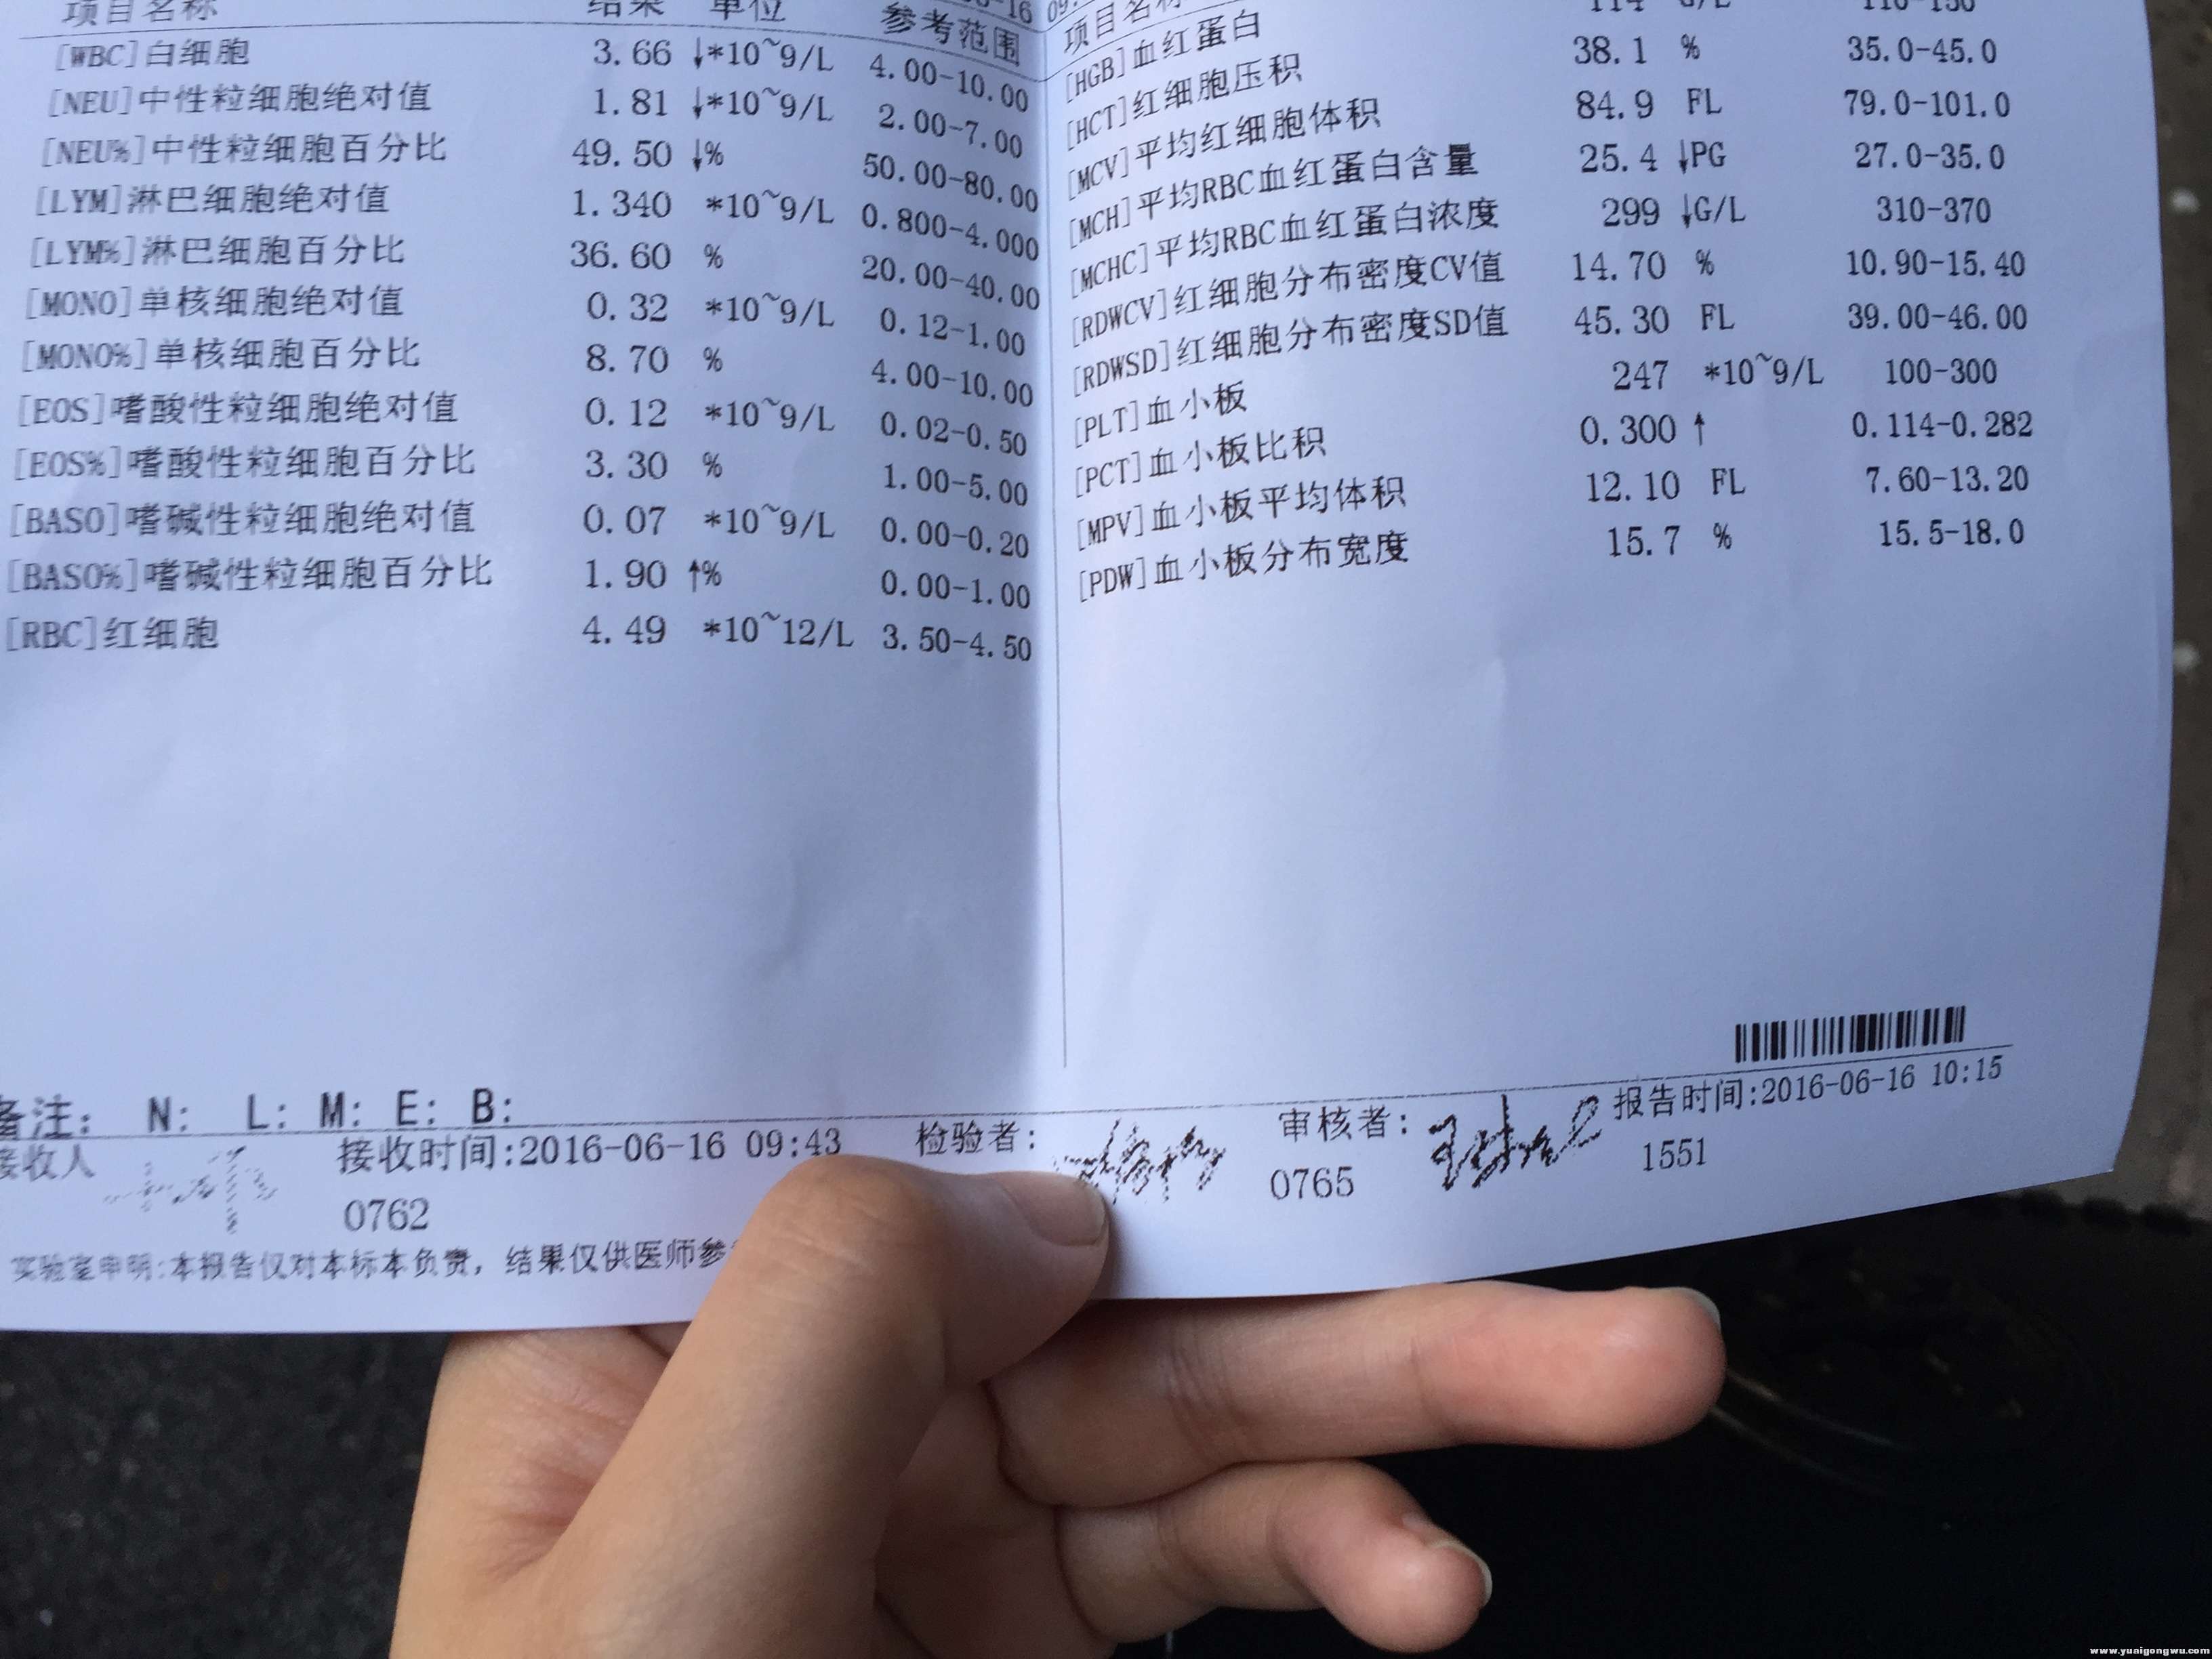 项目名称 结果 单位 参考范围
[WBC]白细胞 3.66 ↓*10~9/L 4.00-10.00
[NEU]中性粒细胞绝对值 1.81 ↓*10~9/L 2.00-7.00
[NEU%]中性粒细胞百分比 49.50 ↓% 50.00-80.00
[LYM]淋巴细胞绝对值 1.340 *10~9/L 0.800-4.000
[LYM%]淋巴细胞百分比 36.60 % 20.00-40.00
[MONO]单核细胞绝对值 0.32 *10~9/L 0.12-1.00
[MONO%]单核细胞百分比 8.70 % 4.00-10.00
[EOS]嗜酸性粒细胞绝对值 0.12 *10~9/L 0.02-0.50
[EOS%]嗜酸性粒细胞百分比 3.30 % 1.00-5.00
[BASO]嗜碱性粒细胞绝对值 0.07 *10~9/L 0.00-0.20
[BASO%]嗜碱性粒细胞百分比 1.90 ↑% 0.00-1.00
[RBC]红细胞 4.49 *10~12/L 3.50-4.50
-16 09:
项目名称
[HGB]血红蛋白 114 G/L 110-150
[HCT]红细胞压积 38.1 % 35.0-45.0
[MCV]平均红细胞体积 84.9 FL 79.0-101.0
[MCH]平均RBC血红蛋白含量 25.4 ↓PG 27.0-35.0
[MCHC]平均RBC血红蛋白浓度 299 ↓G/L 310-370
[RDWCV]红细胞分布密度CV值 14.70 % 10.90-15.40
[RDWSD]红细胞分布密度SD值 45.30 FL 39.00-46.00
[PLT]血小板 247 *10~9/L 100-300
[PCT]血小板比积 0.300 ↑ 0.114-0.282
[MPV]血小板平均体积 12.10 FL 7.60-13.20
[PDW]血小板分布宽度 15.7 % 15.5-18.0
备注: N: L: M: E: B:
接收人 接收时间:2016-06-16 09:43 检验者: 审核者: 报告时间:2016-06-16 10:15
0762 0765 1551
实验室申明:本报告仅对本标本负责, 结果仅供医师参
www.yuaigongwu.com